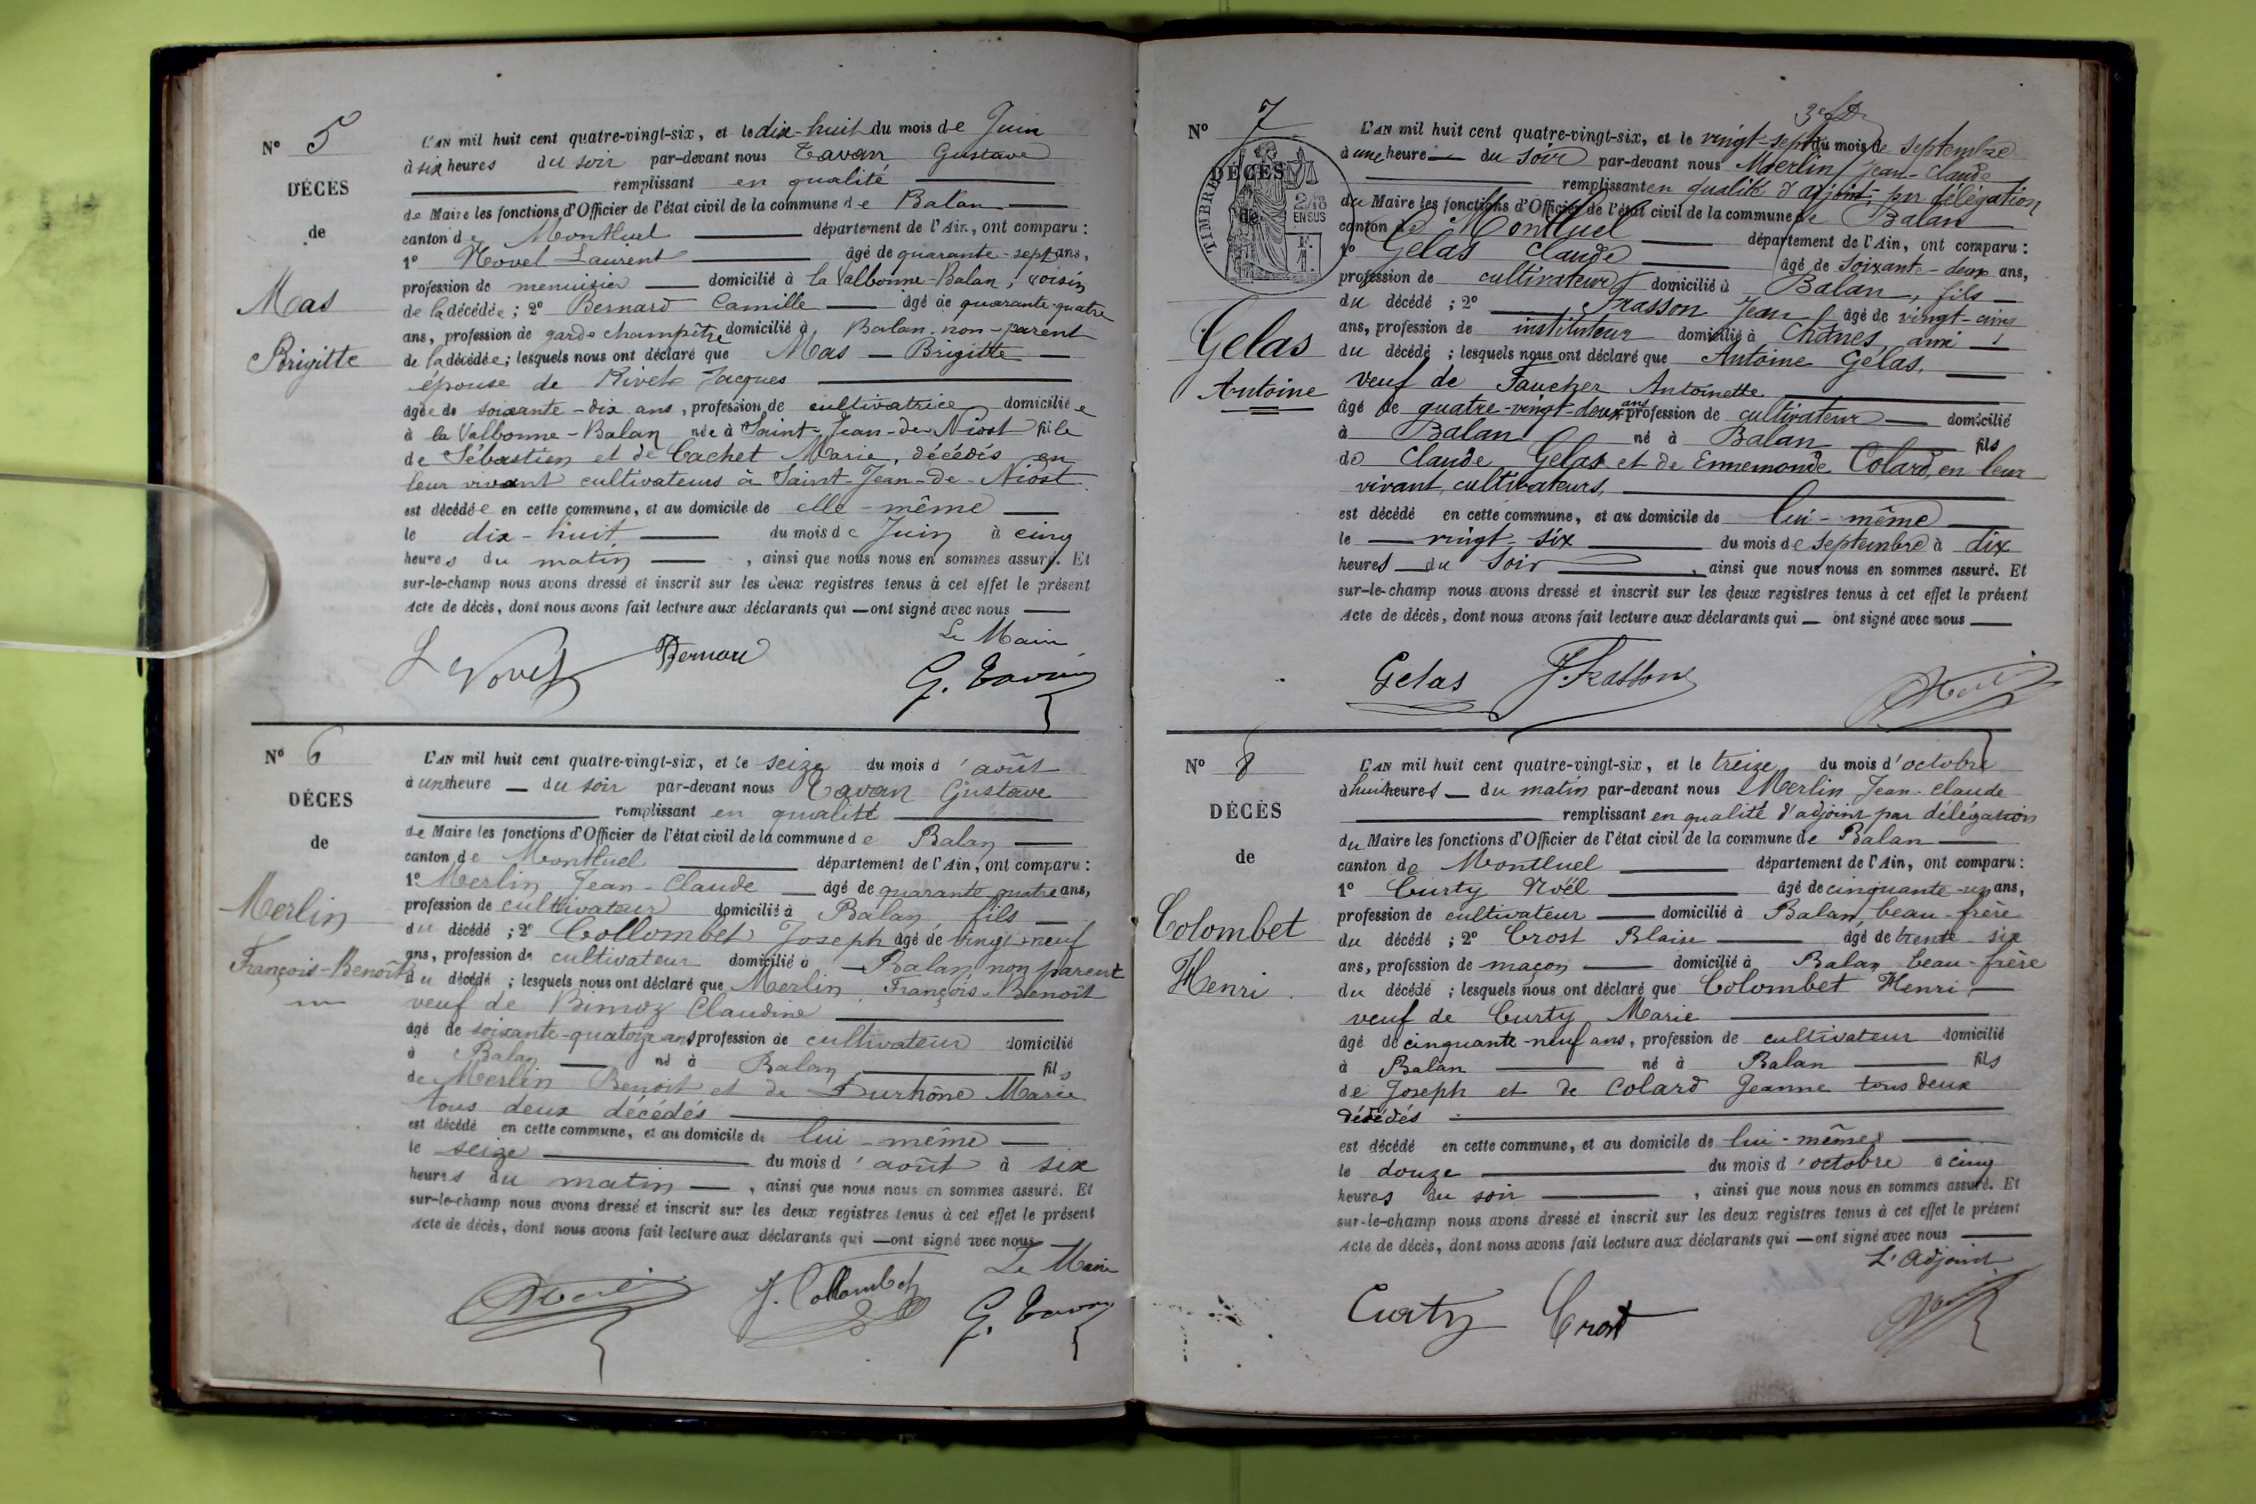 N° 5
DÉCES
de
Mas
Brigitte
L'AN mil huit cent quatre-vingt-six, et le dix-huit du mois de Juin
à six heures du soir par-devant nous Tavan Gustave
remplissant en qualité
de Maire les fonctions d'Officier de l'état civil de la commune de Balan
canton de Montluel département de l'Ain, ont comparu :
1° Novel Laurent âgé de quarante-sept ans,
profession de menuisier domicilié à la Valbonne-Balan, voisin
de la décédée ; 2° Bernard Camille âgé de quarante quatre
ans, profession de garde champêtre domicilié à Balan, non-parent
de la décédée ; lesquels nous ont déclaré que Mas Brigitte
épouse de Rivet Jacques
âgée de soixante-dix ans, profession de cultivatrice domiciliée
à la Valbonne-Balan née à Saint-Jean-de-Niost fille
de Sébastien et de Cachet Marie, décédés en
leur vivant cultivateurs à Saint-Jean-de-Niost.
est décédée en cette commune, et au domicile de elle-même
le dix-huit du mois de Juin à cinq
heures du matin, ainsi que nous nous en sommes assuré. Et
sur-le-champ nous avons dressé et inscrit sur les deux registres tenus à cet effet le présent
Acte de décès, dont nous avons fait lecture aux déclarants qui — ont signé avec nous
Le Maire
L Novel Bernard G. Tavan
N° 6
DÉCES
de
Merlin
François-Benoît
L'AN mil huit cent quatre-vingt-six, et le seize du mois d'août
à une heure du soir par-devant nous Tavan Gustave
remplissant en qualité
de Maire les fonctions d'Officier de l'état civil de la commune de Balan
canton de Montluel département de l'Ain, ont comparu :
1° Merlin Jean-Claude âgé de quarante quatre ans,
profession de cultivateur domicilié à Balan, fils
du décédé ; 2° Collombet Joseph âgé de vingt-neuf
ans, profession de cultivateur domicilié à Balan, non parent
du décédé ; lesquels nous ont déclaré que Merlin François-Benoît
veuf de Bimoz Claudine
âgé de soixante-quatorze ans profession de cultivateur domicilié
à Balan né à Balan fils
de Merlin Benoit et de Durhône Marie
tous deux décédés
est décédé en cette commune, et au domicile de lui-même
le seize du mois d'août à six
heures du matin, ainsi que nous nous en sommes assuré. Et
sur-le-champ nous avons dressé et inscrit sur les deux registres tenus à cet effet le présent
Acte de décès, dont nous avons fait lecture aux déclarants qui — ont signé avec nous
Le Maire
J. Collombet G. Tavan
N° 7
DÉCÈS
de
TIMBRE
2/10 EN SUS
Gelas
Antoine
L'AN mil huit cent quatre-vingt-six, et le vingt-sept du mois de septembre
à une heure du soir par-devant nous Merlin Jean-Claude
remplissant en qualité d'adjoint par délégation
du Maire les fonctions d'Officier de l'état civil de la commune de Balan
canton de Montluel département de l'Ain, ont comparu :
1° Gelas Claude âgé de soixante-deux ans,
profession de cultivateur domicilié à Balan, fils
du décédé ; 2° Frasson Jean âgé de vingt-cinq
ans, profession de instituteur domicilié à Chânes, ami
du décédé ; lesquels nous ont déclaré que Antoine Gelas,
veuf de Faucher Antoinette
âgé de quatre-vingt-deux ans profession de cultivateur domicilié
à Balan né à Balan fils
de Claude Gelas et de Ennemonde Colard, en leur
vivant, cultivateurs,
est décédé en cette commune, et au domicile de lui-même
le vingt-six du mois de septembre à dix
heures du soir, ainsi que nous nous en sommes assuré. Et
sur-le-champ nous avons dressé et inscrit sur les deux registres tenus à cet effet le présent
Acte de décès, dont nous avons fait lecture aux déclarants qui — ont signé avec nous
Gelas J. Frasson
N° 8
DÉCÈS
de
Colombet
Henri
L'AN mil huit cent quatre-vingt-six, et le treize du mois d'octobre
à huit heures du matin par-devant nous Merlin Jean-Claude
remplissant en qualité d'adjoint par délégation
du Maire les fonctions d'Officier de l'état civil de la commune de Balan
canton de Montluel département de l'Ain, ont comparu :
1° Curty Noël âgé de cinquante-un ans,
profession de cultivateur domicilié à Balan, beau-frère
du décédé ; 2° Crost Blaise âgé de trente-six
ans, profession de maçon domicilié à Balan beau-frère
du décédé ; lesquels nous ont déclaré que Colombet Henri,
veuf de Curty Marie
âgé de cinquante-neuf ans, profession de cultivateur domicilié
à Balan né à Balan fils
de Joseph et de Colard Jeanne tous deux
décédés
est décédé en cette commune, et au domicile de lui-même
le douze du mois d'octobre à cinq
heures du soir, ainsi que nous nous en sommes assuré. Et
sur-le-champ nous avons dressé et inscrit sur les deux registres tenus à cet effet le présent
Acte de décès, dont nous avons fait lecture aux déclarants qui — ont signé avec nous
L'Adjoint
Curty Crost